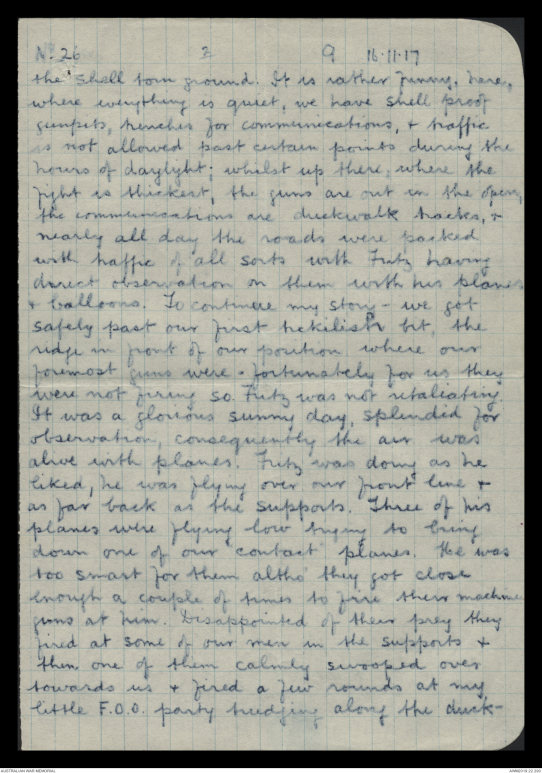 No. 26 2 9 16.11.17
the shell torn ground. It is rather funny, here,
where everything is quiet, we have shell proof
gunpits, trenches for communications, & traffic
is not allowed past certain points during the
hours of daylight; whilst up there, where the
fight is thickest, the guns are out in the open,
the communications are duckwalk tracks, &
nearly all day the roads were packed
with traffic of all sorts with Fritz having
direct observation on them with his planes
& balloons. To continue my story - we got
safely past our first ticklish bit, the
ridge in front of our position where our
foremost guns were - fortunately for us they
were not firing so Fritz was not retaliating.
It was a glorious sunny day, splendid for
observation, consequently the air was
alive with planes. Fritz was doing as he
liked, he was flying over our front line &
as far back as the supports. Three of his
planes were flying low trying to bring
down one of our "contact" planes. He was
too smart for them altho' they got close
enough a couple of times to fire their machine
guns at him. Disappointed of their prey they
fired at some of our men in the supports &
then one of them calmly swooped over
towards us & fired a few rounds at my
little F.O.O. party trudging along the duck-
AUSTRALIAN WAR MEMORIAL